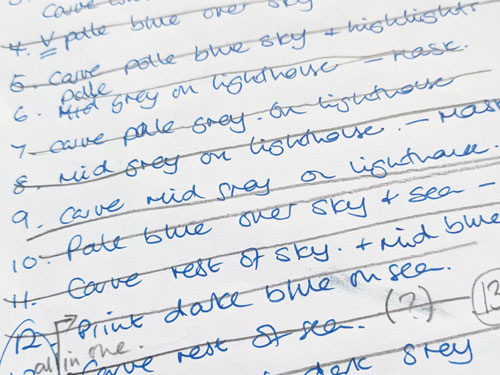 4. V pale blue over sky
5. Carve pale blue sky + highlights
6. pale Mid grey on lighthouse – mask.
7. Carve pale grey. on lighthouse
8. Mid grey on lighthouse. – Mask
9. Carve mid grey on lighthouse.
10. Pale blue over sky + sea –
11. Carve rest of sky. + Mid blue
12. Print dark blue on sea.
all in one. Carve rest of sea. (?) 13
dark grey